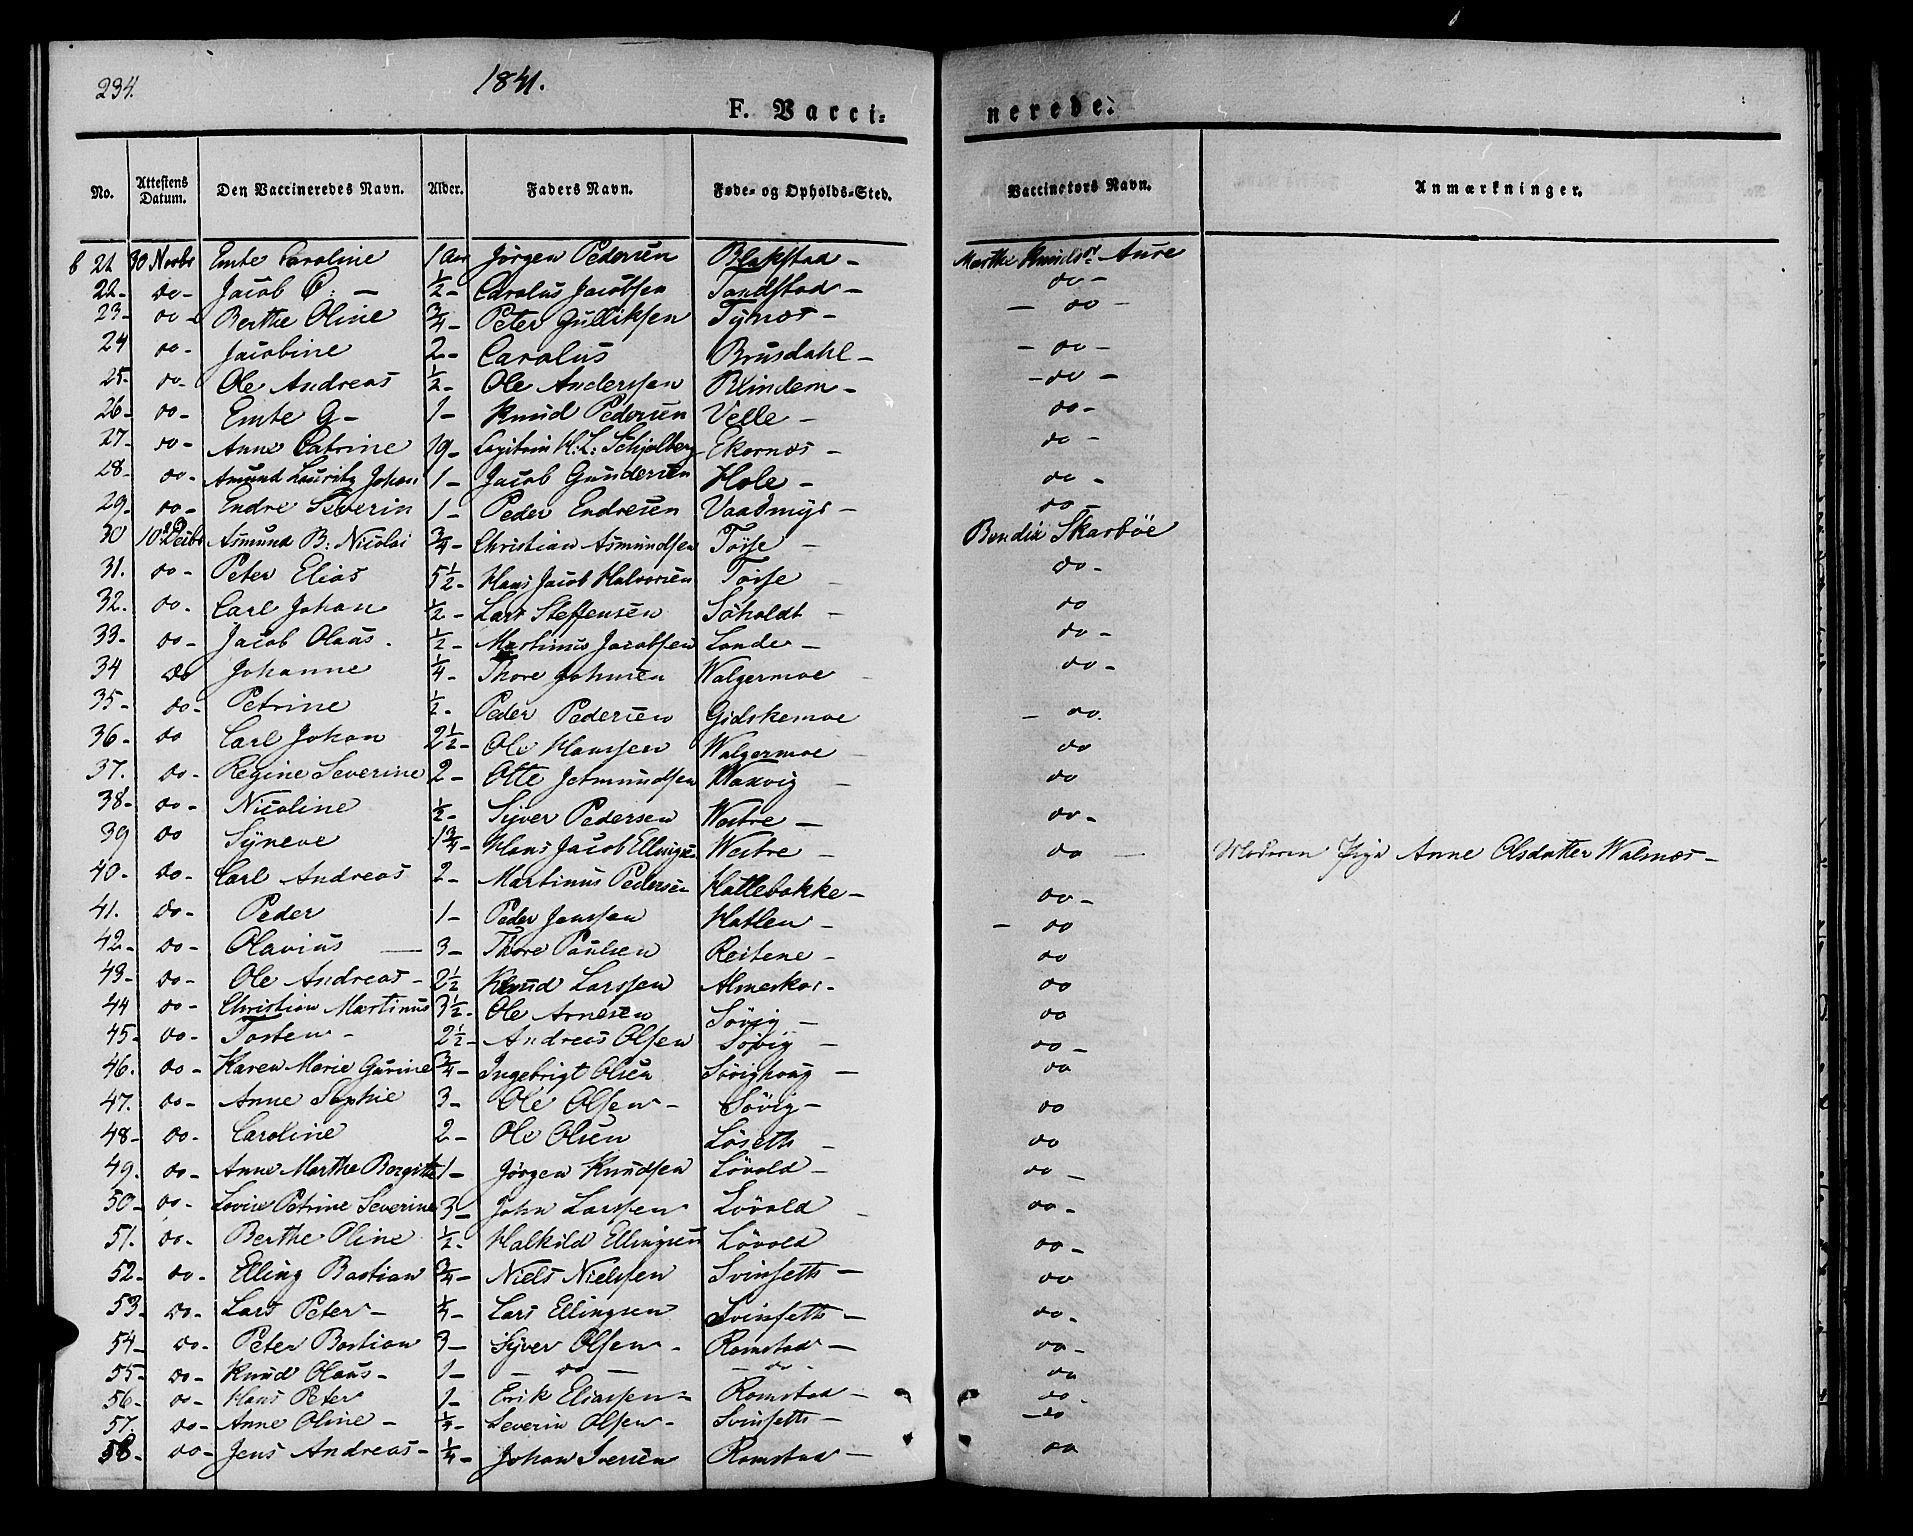 234.
1841.
F. Vacci-
nerede.
No. Attestens Datum. Den Vaccineredes Navn. Alder. Faders Navn. Føde- og Opholds-Sted. Vaccinators Navn. Anmærkninger.
21 30 Novbr Emte Caroline 1 Aar Jørgen Pedersen Blakstad - Marthe Knudsd. Aure
22- do - Jacob C: - 1/2 - Carolus Jacobsen Tandstad - do -
23- do - Berthe Oline 3/4 - Peter Gulliksen Tynes - - do -
24 do - Jacobine 2 - Carolus Brusdahl - - do -
25- do - Ole Andreas 1/2 - Ole Anderssen Blindem - - do -
26- do - Emte G - 1 - Knud Pedersen Velle - do -
27- do - Anne Catrine 19 - Capitain H: L: Schjelberg Ekornes - do -
28- do - Amund Lauritz Johan 1 - Jacob Gundersen Hole - do -
29- do - Endre Severin 1 - Peder Endresen Vaadmyr - do -
30 10 Decbr Asmund B: Nicolai 3/4 - Christian Asmundsen Tørse - Bendix Skarbøe
31. do - Peter Elias 5 1/2 - Hans Jacob Halvorsen Tørse - do -
32. do - Carl Johan 1/2 - Lars Steffensen Søholdt - do
33- do - Jacob Olaus. 1/2 - Martinus Jacobsen Lande - do -
34 do Johanne 1/4 - Thore Johnsen Walgermoe - do -
35- do - Petrine 1/2 - Peder Pedersen Gidskemoe - do.
36- do Carl Johan 2 1/2 - Ole Hanssen Walgermoe do
37. do - Regine Severine 2 - Otte Jetmundsen Waxvig - do
38- do - Nicoline 1/2 - Syver Pedersen Westre - do -
39 do Syneve 1 3/4 - Hans Jacob Ellingsen Westre - do - Moderen Pige Anne Olsdatter Walnæs -
40- do - Carl Andreas 2 - Martinus Pedersen Hattebakke - do -
41. do - Peder 1 - Peder Jenssen Hatlen - - do
42- do - Olavius - 3 - Thore Paulsen Reitene - do
43- do - Ole Andreas - 2 1/2 Knud Larssen Almeskar - do
44 do - Christian Martinus 3 1/2 - Ole Arnesen Søvig - do
45- do - Tosten - 2 1/2 - Andreas Olsen Søvig - do -
46. do - Karen Marie Gurine 3/4 - Ingebrigt Olsen Søvighoug - do
47. do - Anne Sophie 3 - Ole Olsen - Søvig - do
48- do - Caroline 2 - Ole Olsen Løseth - do
49. do - Anne Marthe Borgitte 1 - Jørgen Knudsen Løvold - do -
50- do - Lovise Petrine Severine 3 - John Larssen Løvold - do -
51. do - Berthe Oline 1/2 - Halkild Ellingsen Løvold do -
52- do - Elling Bastian 3/4 - Niels Nielsen Svinseth - do
53- do - Lars Peter - 1/4 - Lars Ellingsen Svinseth - do -
54- do - Peter Bastian 3 - Syver Olsen - Romstad - do -
55- do - Knud Olaus - 1 - - do - - do - do
56- do - Hans Peter 1 - Erik Eliassen - Romstad - do
57. do - Anne Oline - 1/4 - Severin Olsen - Svinseth - - do
58- do - Jens Andreas - 1/4 - Johan Iversen Romstad - do